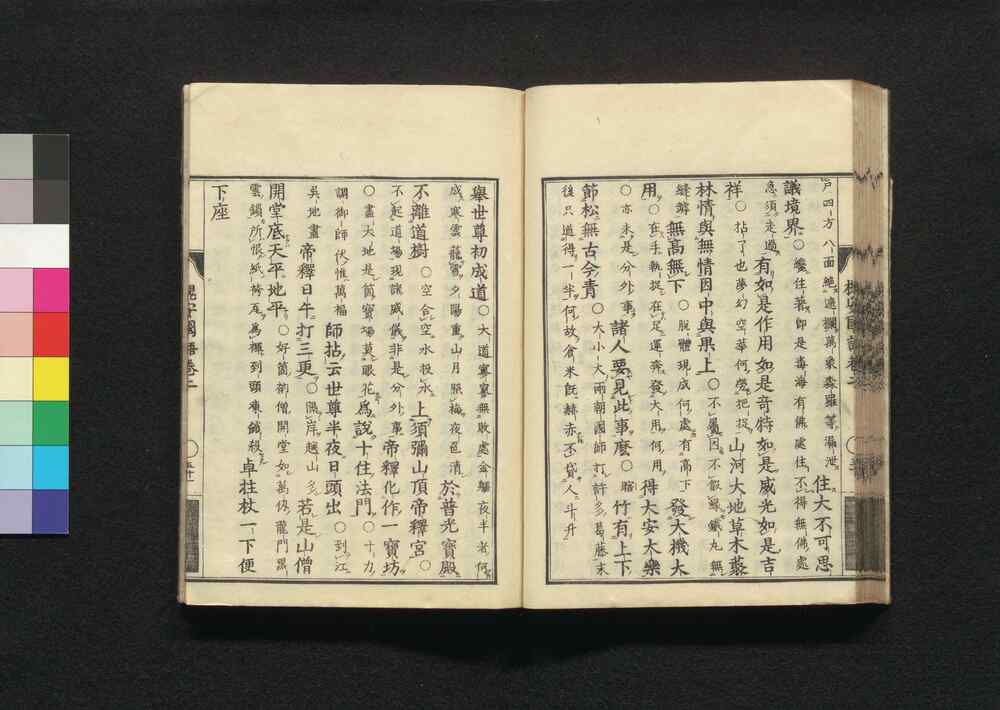 戸四方八面絶遮攔萬象森羅等漏泄住大不可思
議境界○纔住著即是毒海有佛處住不得無佛處
急須走過有如是作用如是奇特如是威光如是吉
祥○拈了也夢幻空華何勞把捉山河大地草木叢
林情與無情因中與果上○不屬因不假緣鐵丸無
縫罅無高無下○脫體現成何處有高下發大機大
用○在手執捉在足運奔發大用何用得大安大樂
○亦未是分外事諸人要見此事麼○瞎竹有上下
節松無古今青○大小大兩朝國師打許多葛藤末
後只道得一半何故倉米既赫赤不貸人斗升
舉世尊初成道○大道寥寥無敢處金軀夜半者何
感寒雲籠雪夕陽重山月照梅夜色清於普光寶殿
不離道樹○空合空水投水上須彌山頂帝釋宮○
不起道場現諸威儀非是分外事帝釋化作一寶坊
○盡大地是箇寶場莫眼花爲說十住法門○十力
調御師伏惟萬福師拈云世尊半夜日頭出○到江
吳地盡帝釋日午打三更○隔岸越山多若是山僧
開堂底天平地平○好箇衲僧開堂如萬仞龍門黑
雲鎖所恨紙袴瓦爲襪到頭凍餓殺卓拄杖一下便
下座